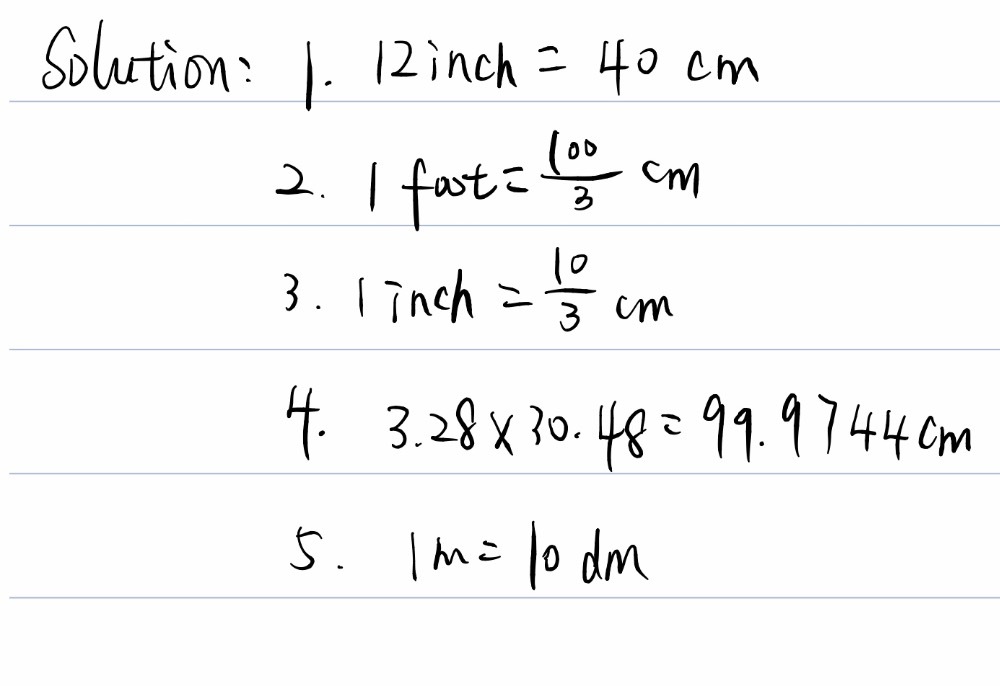 Solution: 1. 12 inch = 40 cm
2. 1 foot = 100/3 cm
3. 1 inch = 10/3 cm
4. 3.28 × 30.48 = 99.9744 cm
5. 1 m = 10 dm